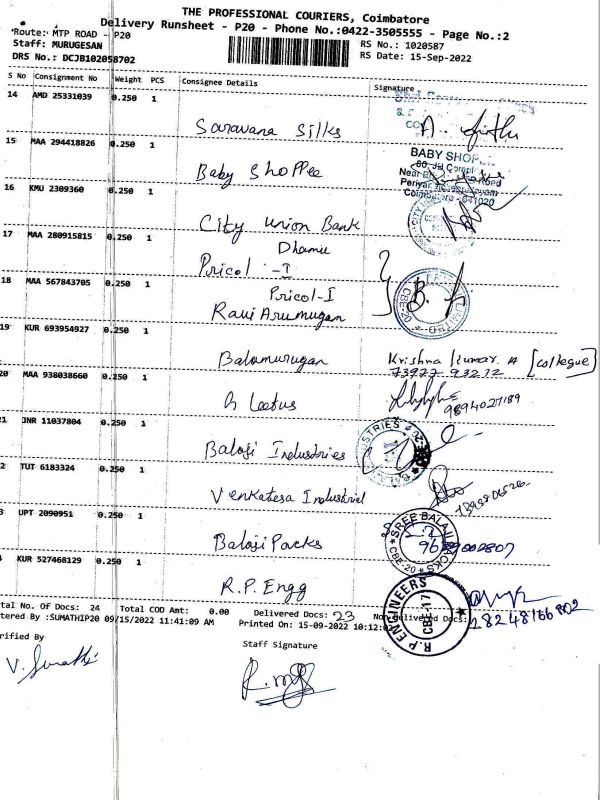 THE PROFESSIONAL COURIERS, Coimbatore
Delivery Runsheet - P20 - Phone No.:0422-3505555 - Page No.:2
Route: MTP ROAD - P20
Staff: MURUGESAN
DRS No.: DCJB102058702
RS No.: 1020587
RS Date: 15-Sep-2022
S No Consignment No Weight PCS Consignee Details Signature
14 AMD 25331039 0.250 1
Saravana Silks
15 MAA 294418826 0.250 1
Baby Shoppee
BABY SHOP
16 KMU 2309360 0.250 1
City Union Bank
17 MAA 280915815 0.250 1
Dhamu
Pricol - I
18 MAA 567843705 0.250 1
Pricol-I
Ravi Arumugan
19 KUR 693954927 0.250 1
Balamurugan
Krishna Kumar. A [collegue]
73977 93212
20 MAA 938038660 0.250 1
9894027189
21 JNR 11037804 0.250 1
Balaji Industries
2 TUT 6183324 0.250 1
Venkatesa Industrial
3 UPT 2090951 0.250 1
Balaji Packs
SREE BALAJI PACKS
CBE-20
KUR 527468129 0.250 1
R.P. Engg
R.P ENGINEERS
CBE-17
8248166802
tal No. Of Docs: 24 Total COD Amt: 0.00 Delivered Docs: 23 Not Delivered Docs: 1
tered By :SUMATHIP20 09/15/2022 11:41:09 AM Printed On: 15-09-2022 10:12:02
rified By
Staff Signature
V. Sumathi